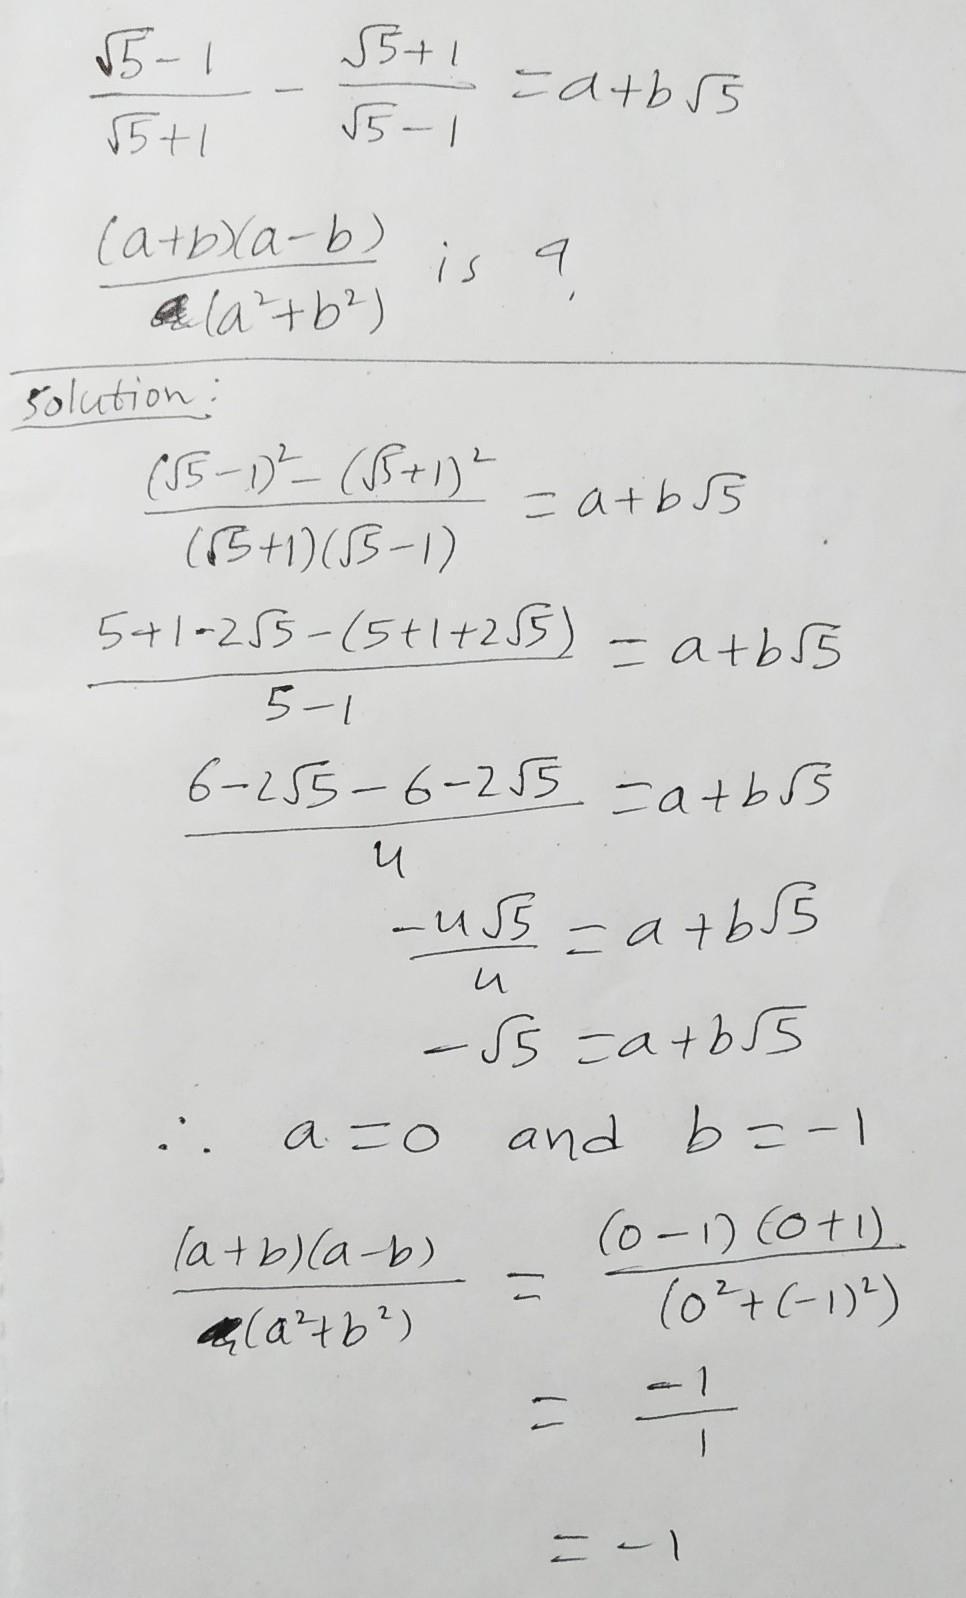 (√5-1)/(√5+1) - (√5+1)/(√5-1) = a+b√5
(a+b)(a-b)/(a²+b²) is ?
Solution:
((√5-1)² - (√5+1)²)/((√5+1)(√5-1)) = a+b√5
(5+1-2√5-(5+1+2√5))/(5-1) = a+b√5
(6-2√5-6-2√5)/4 = a+b√5
-4√5/4 = a+b√5
-√5 = a+b√5
∴ a=0 and b=-1
(a+b)(a-b)/(a²+b²) = (0-1)(0+1)/(0²+(-1)²)
= -1/1
= -1